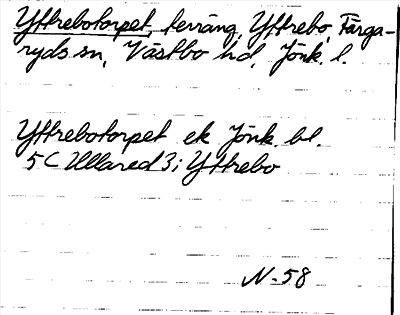 Yttrebotorpet, terräng, Yttrebo, Färga-
ryds sn, Västbo hd, Jönk. l.
Yttrebotorpet ek Jönk. bl.
5C Ullared 3; Yttrebo
N-58